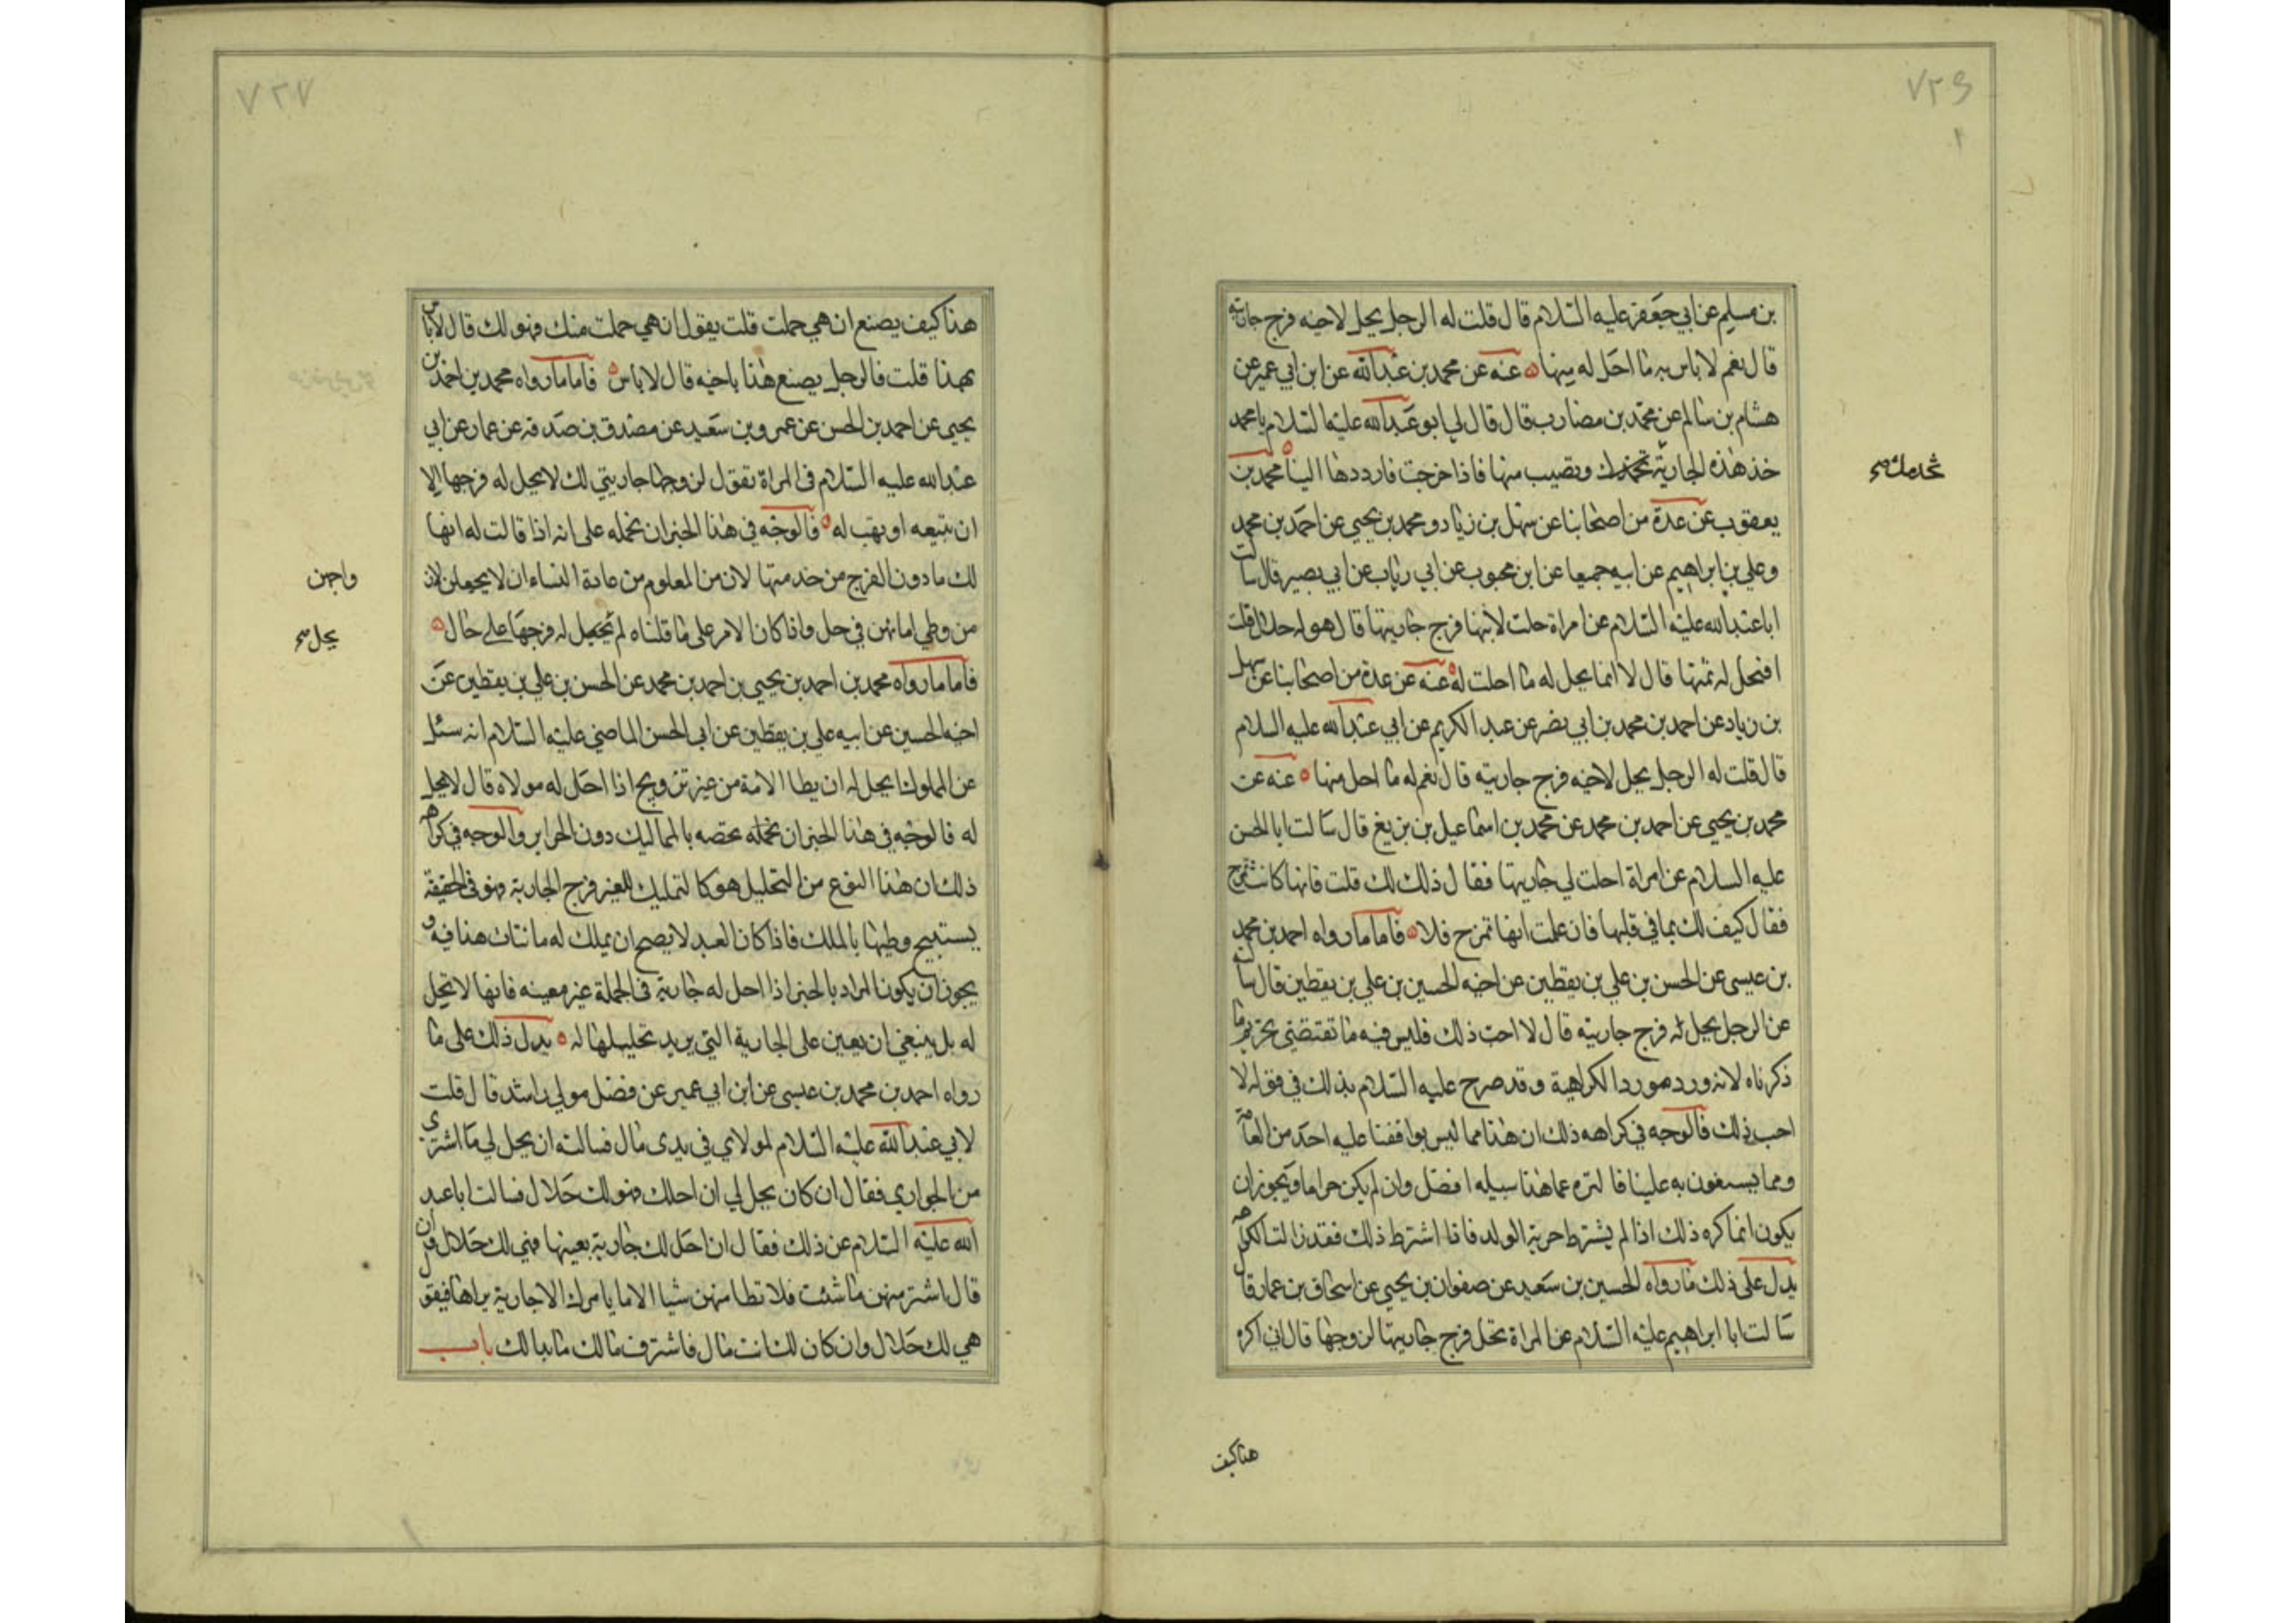 ٧٢٦
بن مسلم عن ابي جعفر عليه السلام قال قلت له الرجل يحل لاخيه فرج جاريته
قال نعم لا باس به ما احل له منها عنه عن محمد بن عبد الله عن ابن ابي عمير عن
هشام بن سالم عن محمد بن مضارب قال قال لي ابو عبد الله عليه السلام يا محمد
خذ هذه الجارية تخدمك وتصيب منها فاذا خرجت فارددها الينا محمد بن
يعقوب عن عدة من اصحابنا عن سهل بن زياد ومحمد بن يحيى عن احمد بن محمد
وعلي بن ابراهيم عن ابيه جميعا عن ابن محبوب عن ابي رياب عن ابي بصير قال سالت
ابا عبد الله عليه السلام عن امراة حلت لابنها فرج جاريتها قال هو له حلال قلت
افتحل له ثمنها قال لا انما يحل له ما احلت له عنه عن عدة من اصحابنا عن سهل
بن زياد عن احمد بن محمد بن ابي نصر عن عبد الكريم عن ابي عبد الله عليه السلام
قال قلت له الرجل يحل لاخيه فرج جاريته قال نعم له ما احل منها عنه عن
محمد بن يحيى عن احمد بن محمد عن محمد بن اسماعيل بن بزيع قال سالت ابا الحسن
عليه السلام عن امراة احلت لي جاريتها فقال ذلك لك قلت فانها كانت تمزح
فقال كيف لك بما في قلبها فان علمت انها تمزح فلا فاما ما رواه احمد بن محمد
بن عيسى عن الحسن بن علي بن يقطين عن اخيه الحسين بن علي بن يقطين قال سالته
عن الرجل يحل له فرج جاريته قال لا احب ذلك فليس فيه ما تقتضى تحريم ما
ذكرناه لانه ورد مورد الكراهية وقد صرح عليه السلام بذلك في قوله لا
احب ذلك فالوجه في كراهه ذلك ان هذا مما ليس يوافقنا عليه احد من العامة
ومما يشنعون به علينا فالتنزه عما هذا سبيله افضل وان لم يكن حراما ويجوز ان
يكون انما كره ذلك اذا لم يشترط حرية الولد فاذا اشترط ذلك فقد زالت الكراهه
يدل على ذلك ما رواه الحسين بن سعيد عن صفوان بن يحيى عن اسحاق بن عمار قال
سالت ابا ابراهيم عليه السلام عن المراة تحل فرج جاريتها لزوجها قال اني اكره
تخدمك صح
هذا كيف
٧٢٧
هذا كيف يصنع ان هي حملت قلت يقول ان هي حملت منك فهو لك قال لا باس
بهذا قلت فالرجل يصنع هذا باخيه قال لا باس فاما ما رواه محمد بن احمد بن
يحيى عن احمد بن الحسن عن عمرو بن سعيد عن مصدق بن صدقه عن عمار عن ابي
عبد الله عليه السلام في المراة تقول لزوجها جاريتي لك لا يحل له فرجها الا
ان تبيعه او تهب له فالوجه في هذا الخبر ان نحمله على انه اذا قالت له انها
لك ما دون الفرج من خدمتها لان من المعلوم من عادة النساء ان لا يجعلن لاز
من وطي امائهن في حل واذا كان الامر على ما قلناه لم تجعل له فرجها على حال
فاما ما رواه محمد بن احمد بن يحيى بن احمد بن محمد عن الحسن بن علي بن يقطين عن
اخيه الحسين عن ابيه علي بن يقطين عن ابي الحسن الماضي عليه السلام انه سئل
عن المملوك ايحل له ان يطا الامة من غير تزويج اذا احل له مولاه قال لا يحل
له فالوجه في هذا الخبر ان نحمله نخصه بالمماليك دون الحراير والوجه في كراهه
ذلك ان هذا النوع من التحليل هو كالتمليك للغير فرج الجارية فهو في الحقيقة
يستبيح وطيها بالملك فاذا كان العبد لا يصح ان يملك له ما نتات هذا فيه و
يجوز ان يكون المراد بالخبر اذا احل له جارية في الجملة غير معينه فانها لا تحل
له بل ينبغي ان يعين على الجارية التي يريد تحليلها له يدل ذلك على ما
رواه احمد بن محمد بن عيسى عن ابن ابي عمير عن فضل مولى راشد قال قلت
لابي عبد الله عليه السلام لمولاي في يدى مال فسالته ان يحل لي ما اشتري
من الجواري فقال ان كان يحل لي ان احلك فهو لك حلال فسالت ابا عبد
الله عليه السلام عن ذلك فقال ان احل لك جارية بعينها فهي لك حلال وان
قال اشتر منهن ما شئت فلا تطا منهن شيا الا ما يامرك الا جارية يراها فيقول
هي لك حلال وان كان لك انت مال فاشتر من مالك ما بدا لك باب
واجهن
يحل صح